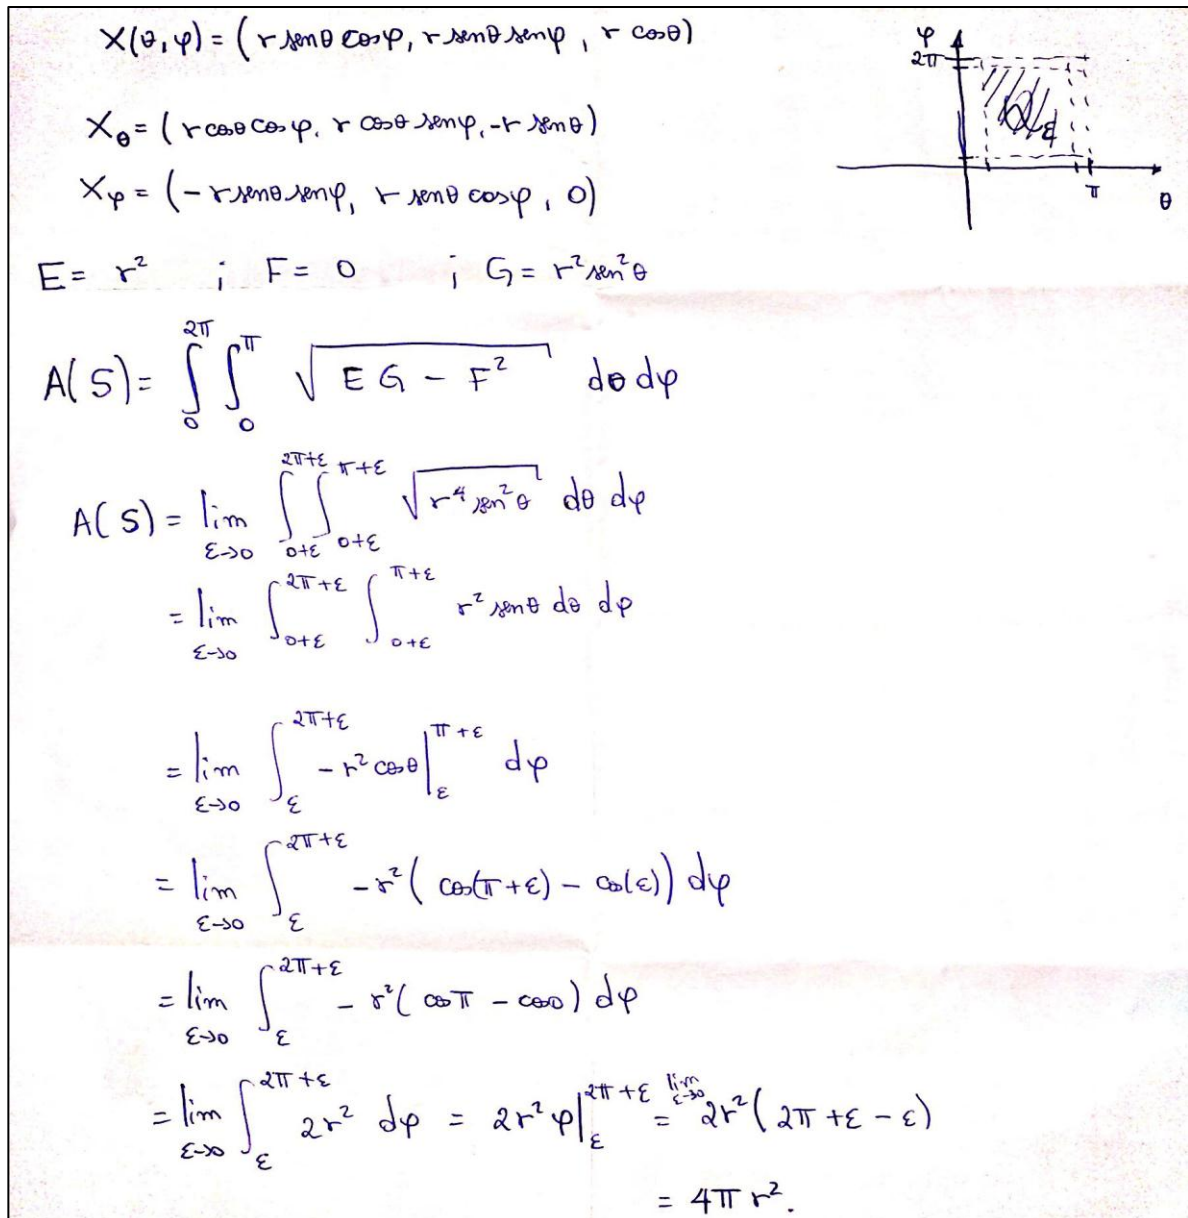 X(θ,φ) = (r senθ cosφ, r senθ senφ, r cosθ)
φ
2π
Q_ε
π
θ
X_θ = (r cosθ cosφ, r cosθ senφ, -r senθ)
X_φ = (-r senθ senφ, r senθ cosφ, 0)
E = r² ; F = 0 ; G = r² sen²θ
A(S) = ∫_0^{2π} ∫_0^π √(EG - F²) dθ dφ
A(S) = lim_{ε→0} ∫_{0+ε}^{2π+ε} ∫_{0+ε}^{π+ε} √(r⁴ sen²θ) dθ dφ
= lim_{ε→0} ∫_{0+ε}^{2π+ε} ∫_{0+ε}^{π+ε} r² senθ dθ dφ
= lim_{ε→0} ∫_ε^{2π+ε} -r² cosθ |_ε^{π+ε} dφ
= lim_{ε→0} ∫_ε^{2π+ε} -r² (cos(π+ε) - cos(ε)) dφ
= lim_{ε→0} ∫_ε^{2π+ε} -r² (cosπ - cos0) dφ
= lim_{ε→0} ∫_ε^{2π+ε} 2r² dφ = 2r² φ|_ε^{2π+ε} = lim_{ε→0} 2r² (2π + ε - ε)
= 4π r².